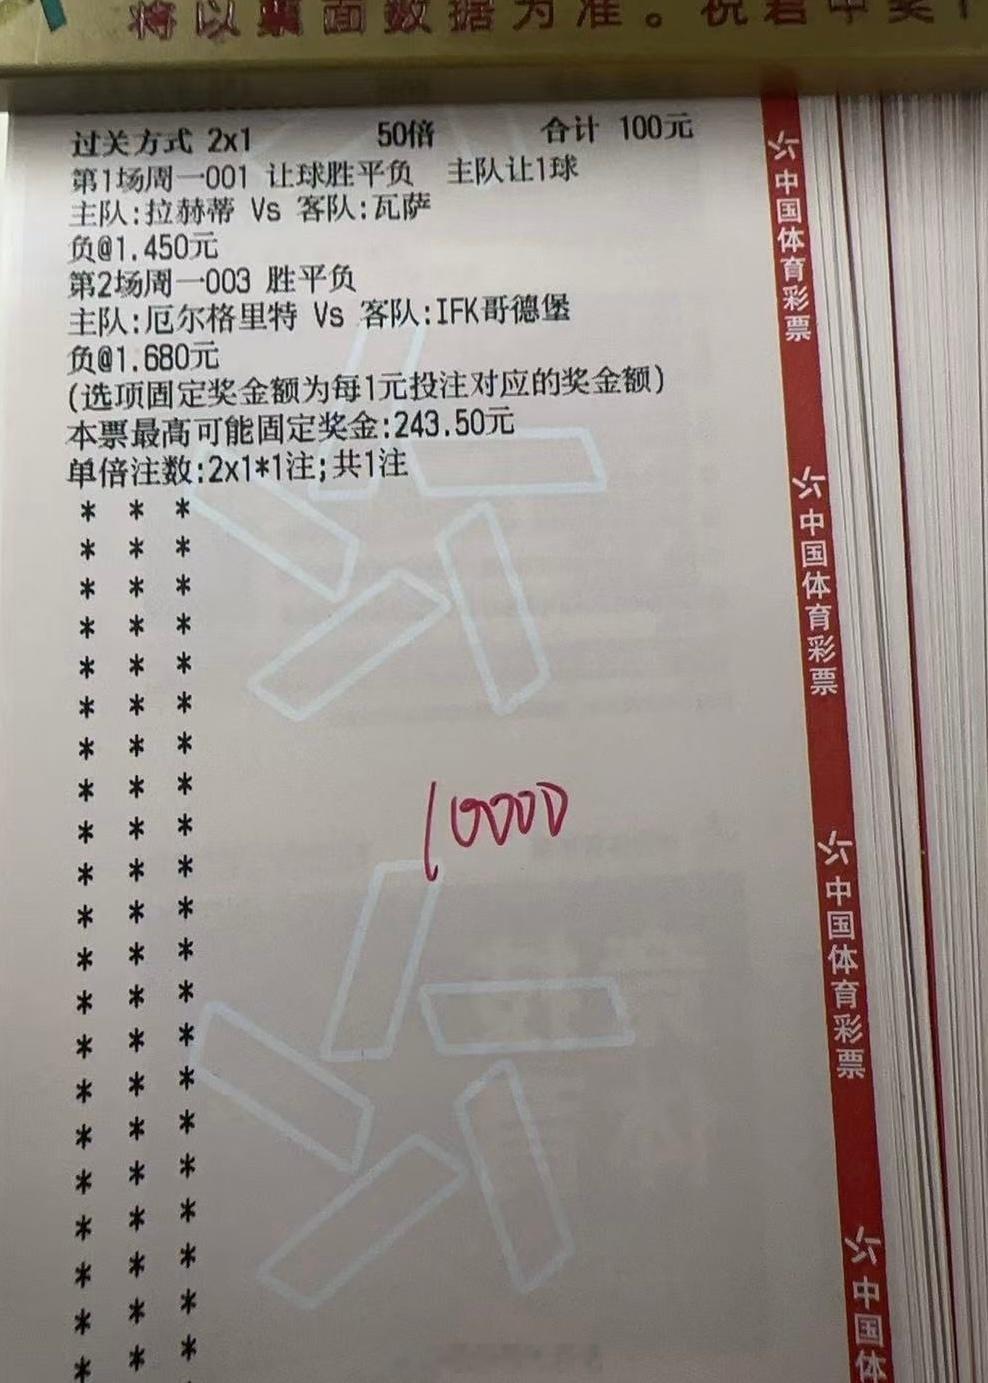 将以票面数据为准。祝君中奖!
过关方式 2x1 50倍 合计 100元
第1场周一001 让球胜平负 主队让1球
主队:拉赫蒂 Vs 客队:瓦萨
负@1.450元
第2场周一003 胜平负
主队:厄尔格里特 Vs 客队:IFK哥德堡
负@1.680元
(选项固定奖金额为每1元投注对应的奖金额)
本票最高可能固定奖金:243.50元
单倍注数:2x1*1注;共1注
* * *
* * *
* * *
* * *
* * *
* * *
* * *
* * *
* * *
* * *
* * *
* * *
* * *
* * *
* * *
* * *
* * *
* * *
* * *
* * *
* * *
10000
中国体育彩票
中国体育彩票
中国体育彩票
中国体